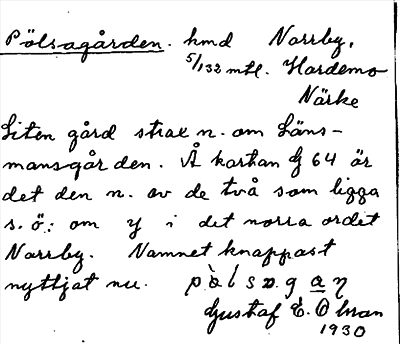 Pölsagården. hmd Norrby,
5/132 mtl. Hardemo
Närke
Liten gård strax n. om Läns-
mansgården. Å kartan G 64 är
det den n. av de två som ligga
s. ö. om y i det norra ordet
Norrby. Namnet knappast
nyttjat nu.
Gustaf E. Olsson
1930